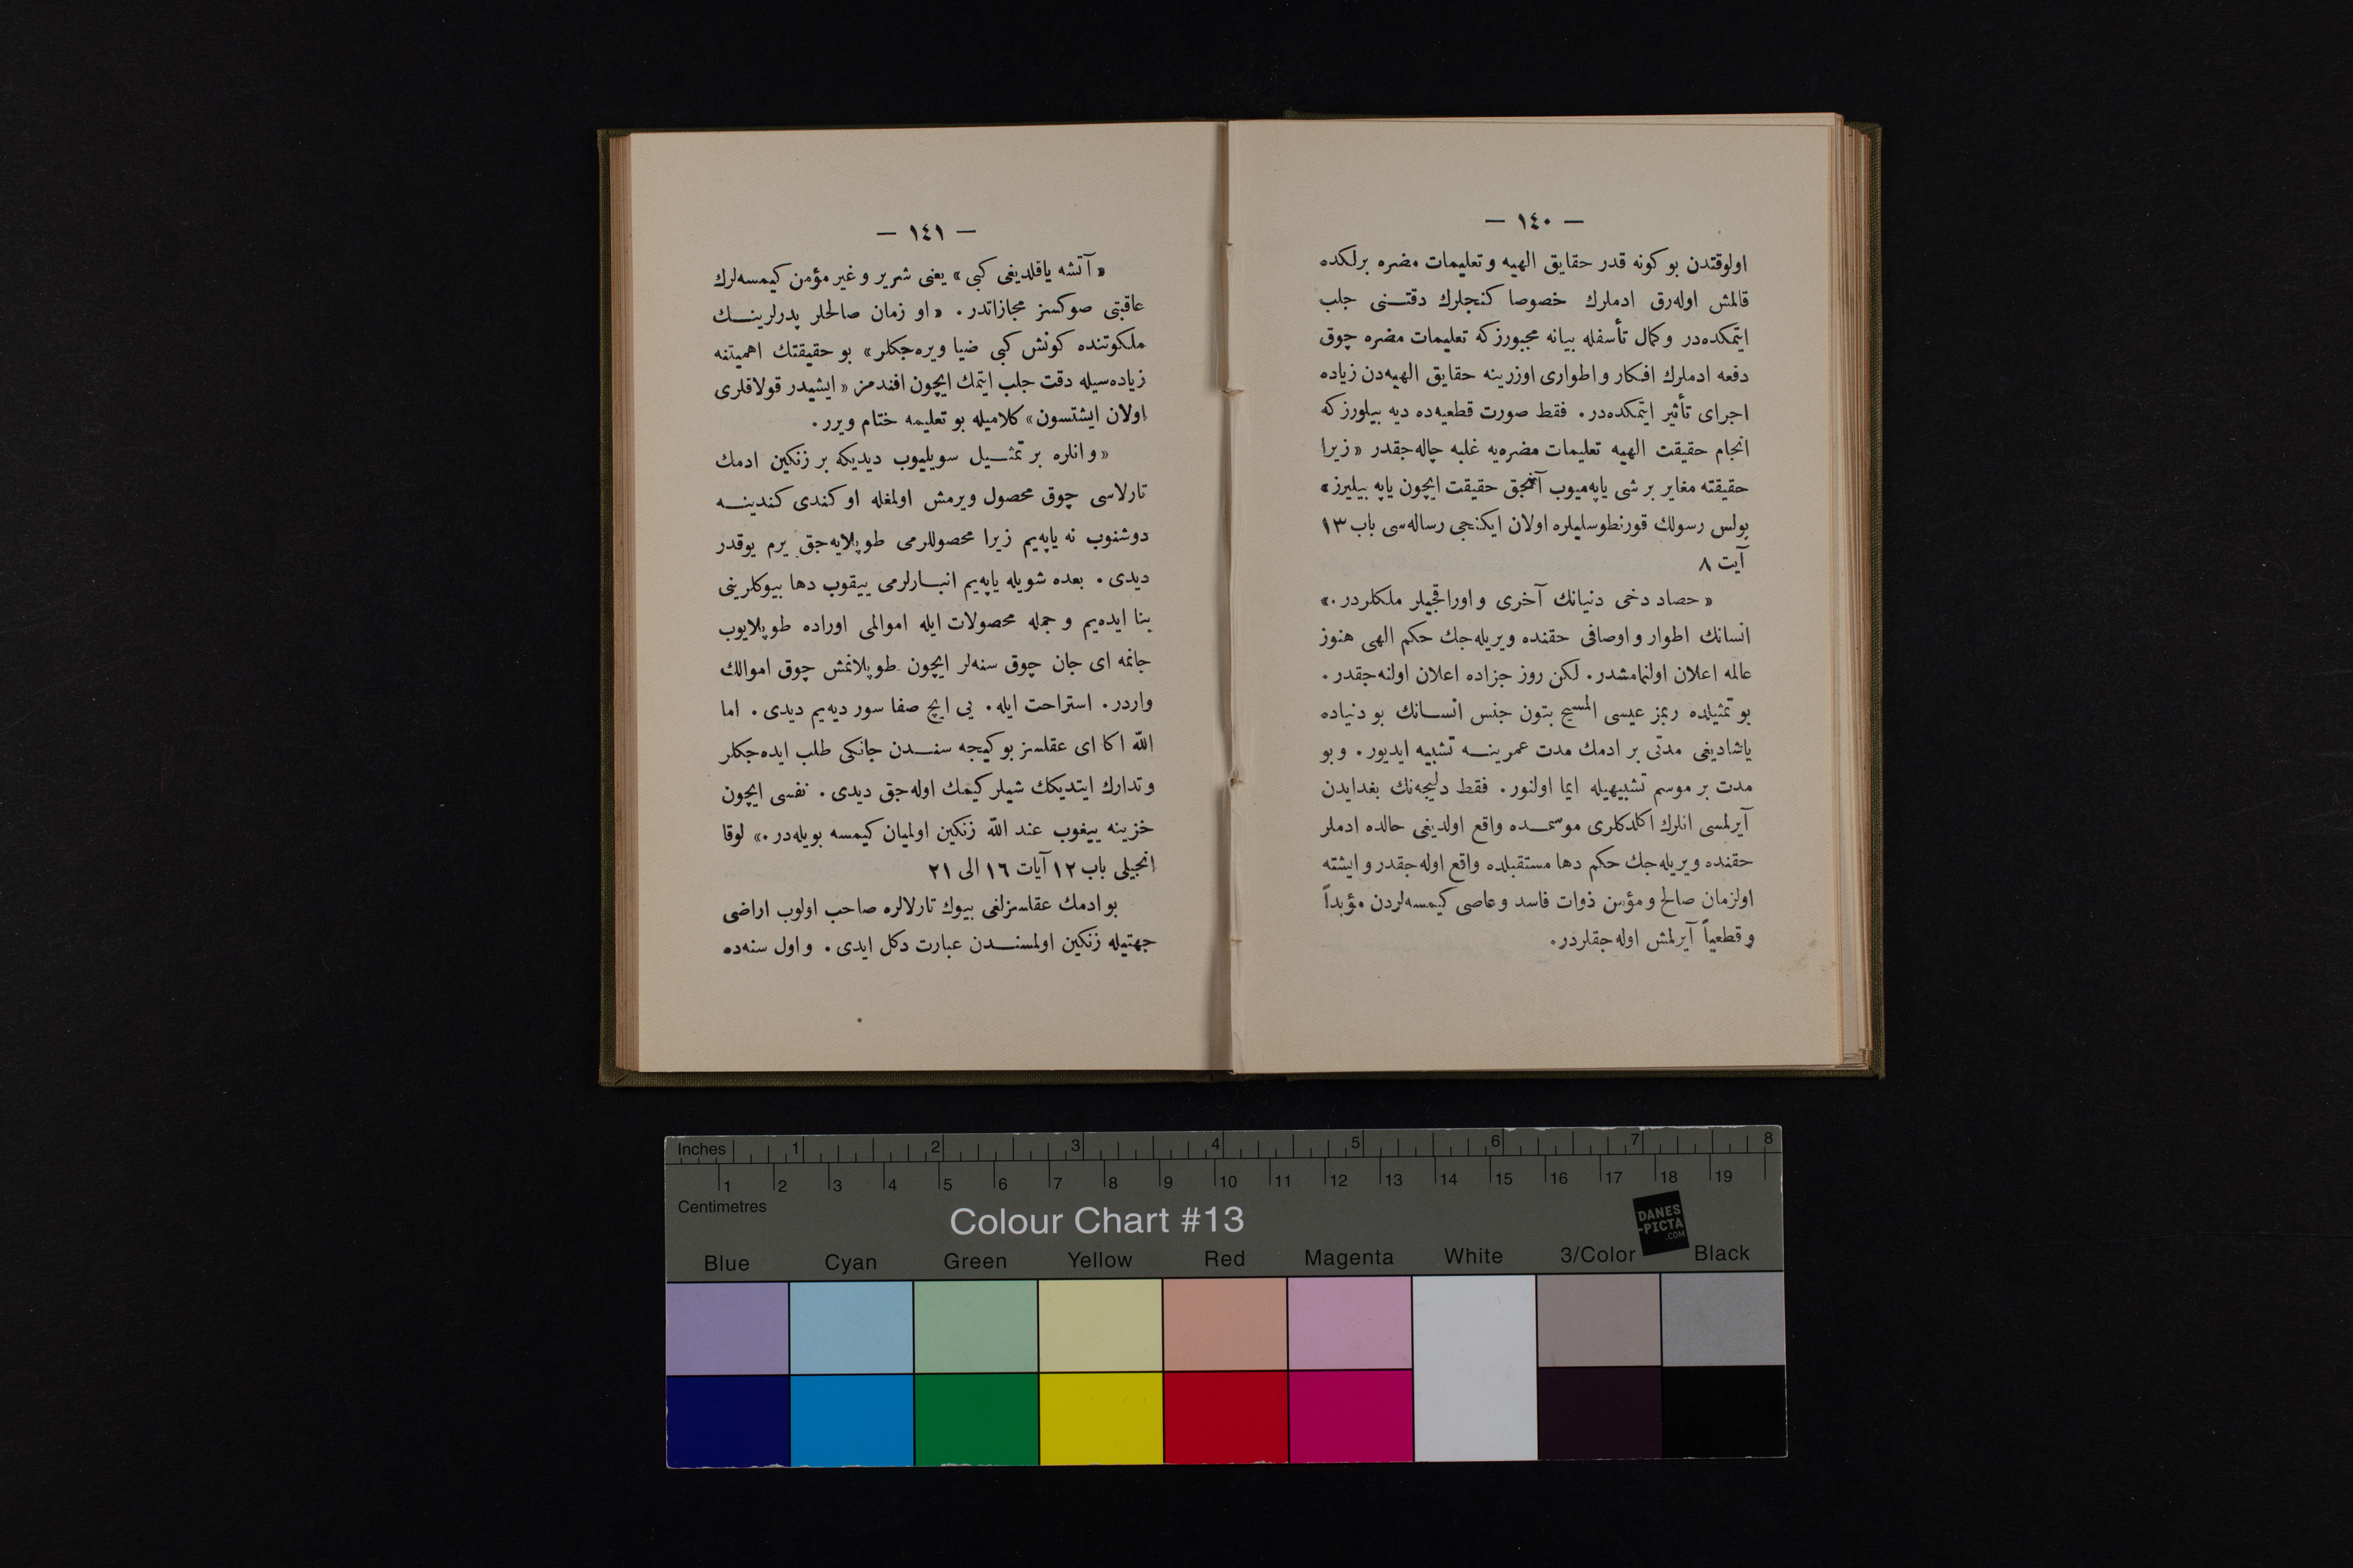 — ١٤٠ —
اولوقتدن بو كونه قدر حقايق الهيه و تعليمات مضره برلكده
قالمش اوله‌رق ادملرك خصوصا كنجلرك دقتنى جلب
ايتمكده‌در و كمال تأسفله بيانه مجبورز كه تعليمات مضره چوق
دفعه ادملرك افكار و اطوارى اوزرينه حقايق الهيه‌دن زياده
اجراى تأثير ايتمكده‌در. فقط صورت قطعيه‌ده ديه بيلورز كه
انجام حقيقت الهيه تعليمات مضره‌يه غلبه چاله‌جقدر «زيرا
حقيقته مغاير بر شى ياپه‌ميوب آنجق حقيقت ايچون ياپه بيليرز»
پولس رسولك قورنطوسليلره اولان ايكنجى رساله‌سى باب ١٣
آيت ٨
«حصاد دخى دنيانك آخرى و اوراقجيلر ملكلردر.»
انسانك اطوار و اوصافى حقنده ويريله‌جك حكم الهى هنوز
عالمه اعلان اولنمامشدر. لكن روز جزاده اعلان اولنه‌جقدر.
بو تمثيلده ربمز عيسى المسيح بتون جنس انسانك بو دنياده
ياشاديغى مدتى بر ادمك مدت عمرينه تشبيه ايديور. و بو
مدت بر موسم تشبيهيله ايما اولنور. فقط دليجه‌نك بغدايدن
آيرلمسى انلرك اكلدكلرى موسمده واقع اولديغى حالده ادملر
حقنده ويريله‌جك حكم دها مستقبلده واقع اوله‌جقدر و ايشته
اولزمان صالح و مؤمن ذوات فاسد و عاصى كيمسه‌لردن مؤبداً
و قطعياً آيرلمش اوله‌جقلردر.
— ١٤١ —
«آتشه ياقلديغى كبى» يعنى شرير و غير مؤمن كيمسه‌لرك
عاقبتى صوكسز مجازاتدر. «او زمان صالحلر پدرلرينك
ملكوتنده كونش كبى ضيا ويره‌جكلر» بو حقيقتك اهميتنه
زياده‌سيله دقت جلب ايتمك ايچون افندمز «ايشيدر قولاقلرى
اولان ايشتسون» كلاميله بو تعليمه ختام ويرر.
«و انلره بر تمثيل سويليوب ديديكه بر زنكين ادمك
تارلاسى چوق محصول ويرمش اولمغله او كندى كندينه
دوشنوب نه ياپه‌يم زيرا محصوللرمى طوپلايه‌جق يرم يوقدر
ديدى. بعده شويله ياپه‌يم انبارلرمى ييقوب دها بيوكلرينى
بنا ايده‌يم و جمله محصولات ايله اموالمى اوراده طوپلايوب
جانمه اى جان چوق سنه‌لر ايچون طوپلانمش چوق اموالك
واردر. استراحت ايله. يى ايچ صفا سور ديه‌يم ديدى. اما
اللّٰه اكا اى عقلسز بو كيجه سندن جانكى طلب ايده‌جكلر
و تدارك ايتديكك شيلر كيمك اوله‌جق ديدى. نفسى ايچون
خزينه ييغوب عند اللّٰه زنكين اولميان كيمسه بويله‌در.» لوقا
انجيلى باب ١٢ آيات ١٦ الى ٢١
بو ادمك عقلسزلغى بيوك تارلالره صاحب اولوب اراضى
جهتيله زنكين اولمسندن عبارت دكل ايدى. و اول سنه‌ده
Inches 1 2 3 4 5 6 7 8
1 2 3 4 5 6 7 8 9 10 11 12 13 14 15 16 17 18 19
Centimetres
Colour Chart #13
DANES
-PICTA
.COM
Blue Cyan Green Yellow Red Magenta White 3/Color Black